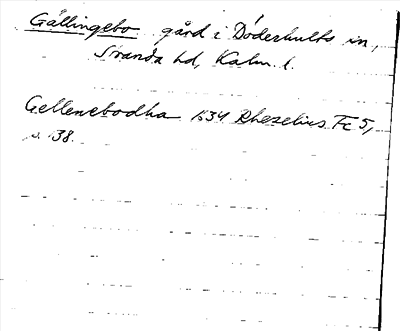 Gällingebo gård i Döderhults sn,
Stranda hd, Kalm. l.
Gellenebodha 1634 Rhezelius Fc 5,
s. 138.